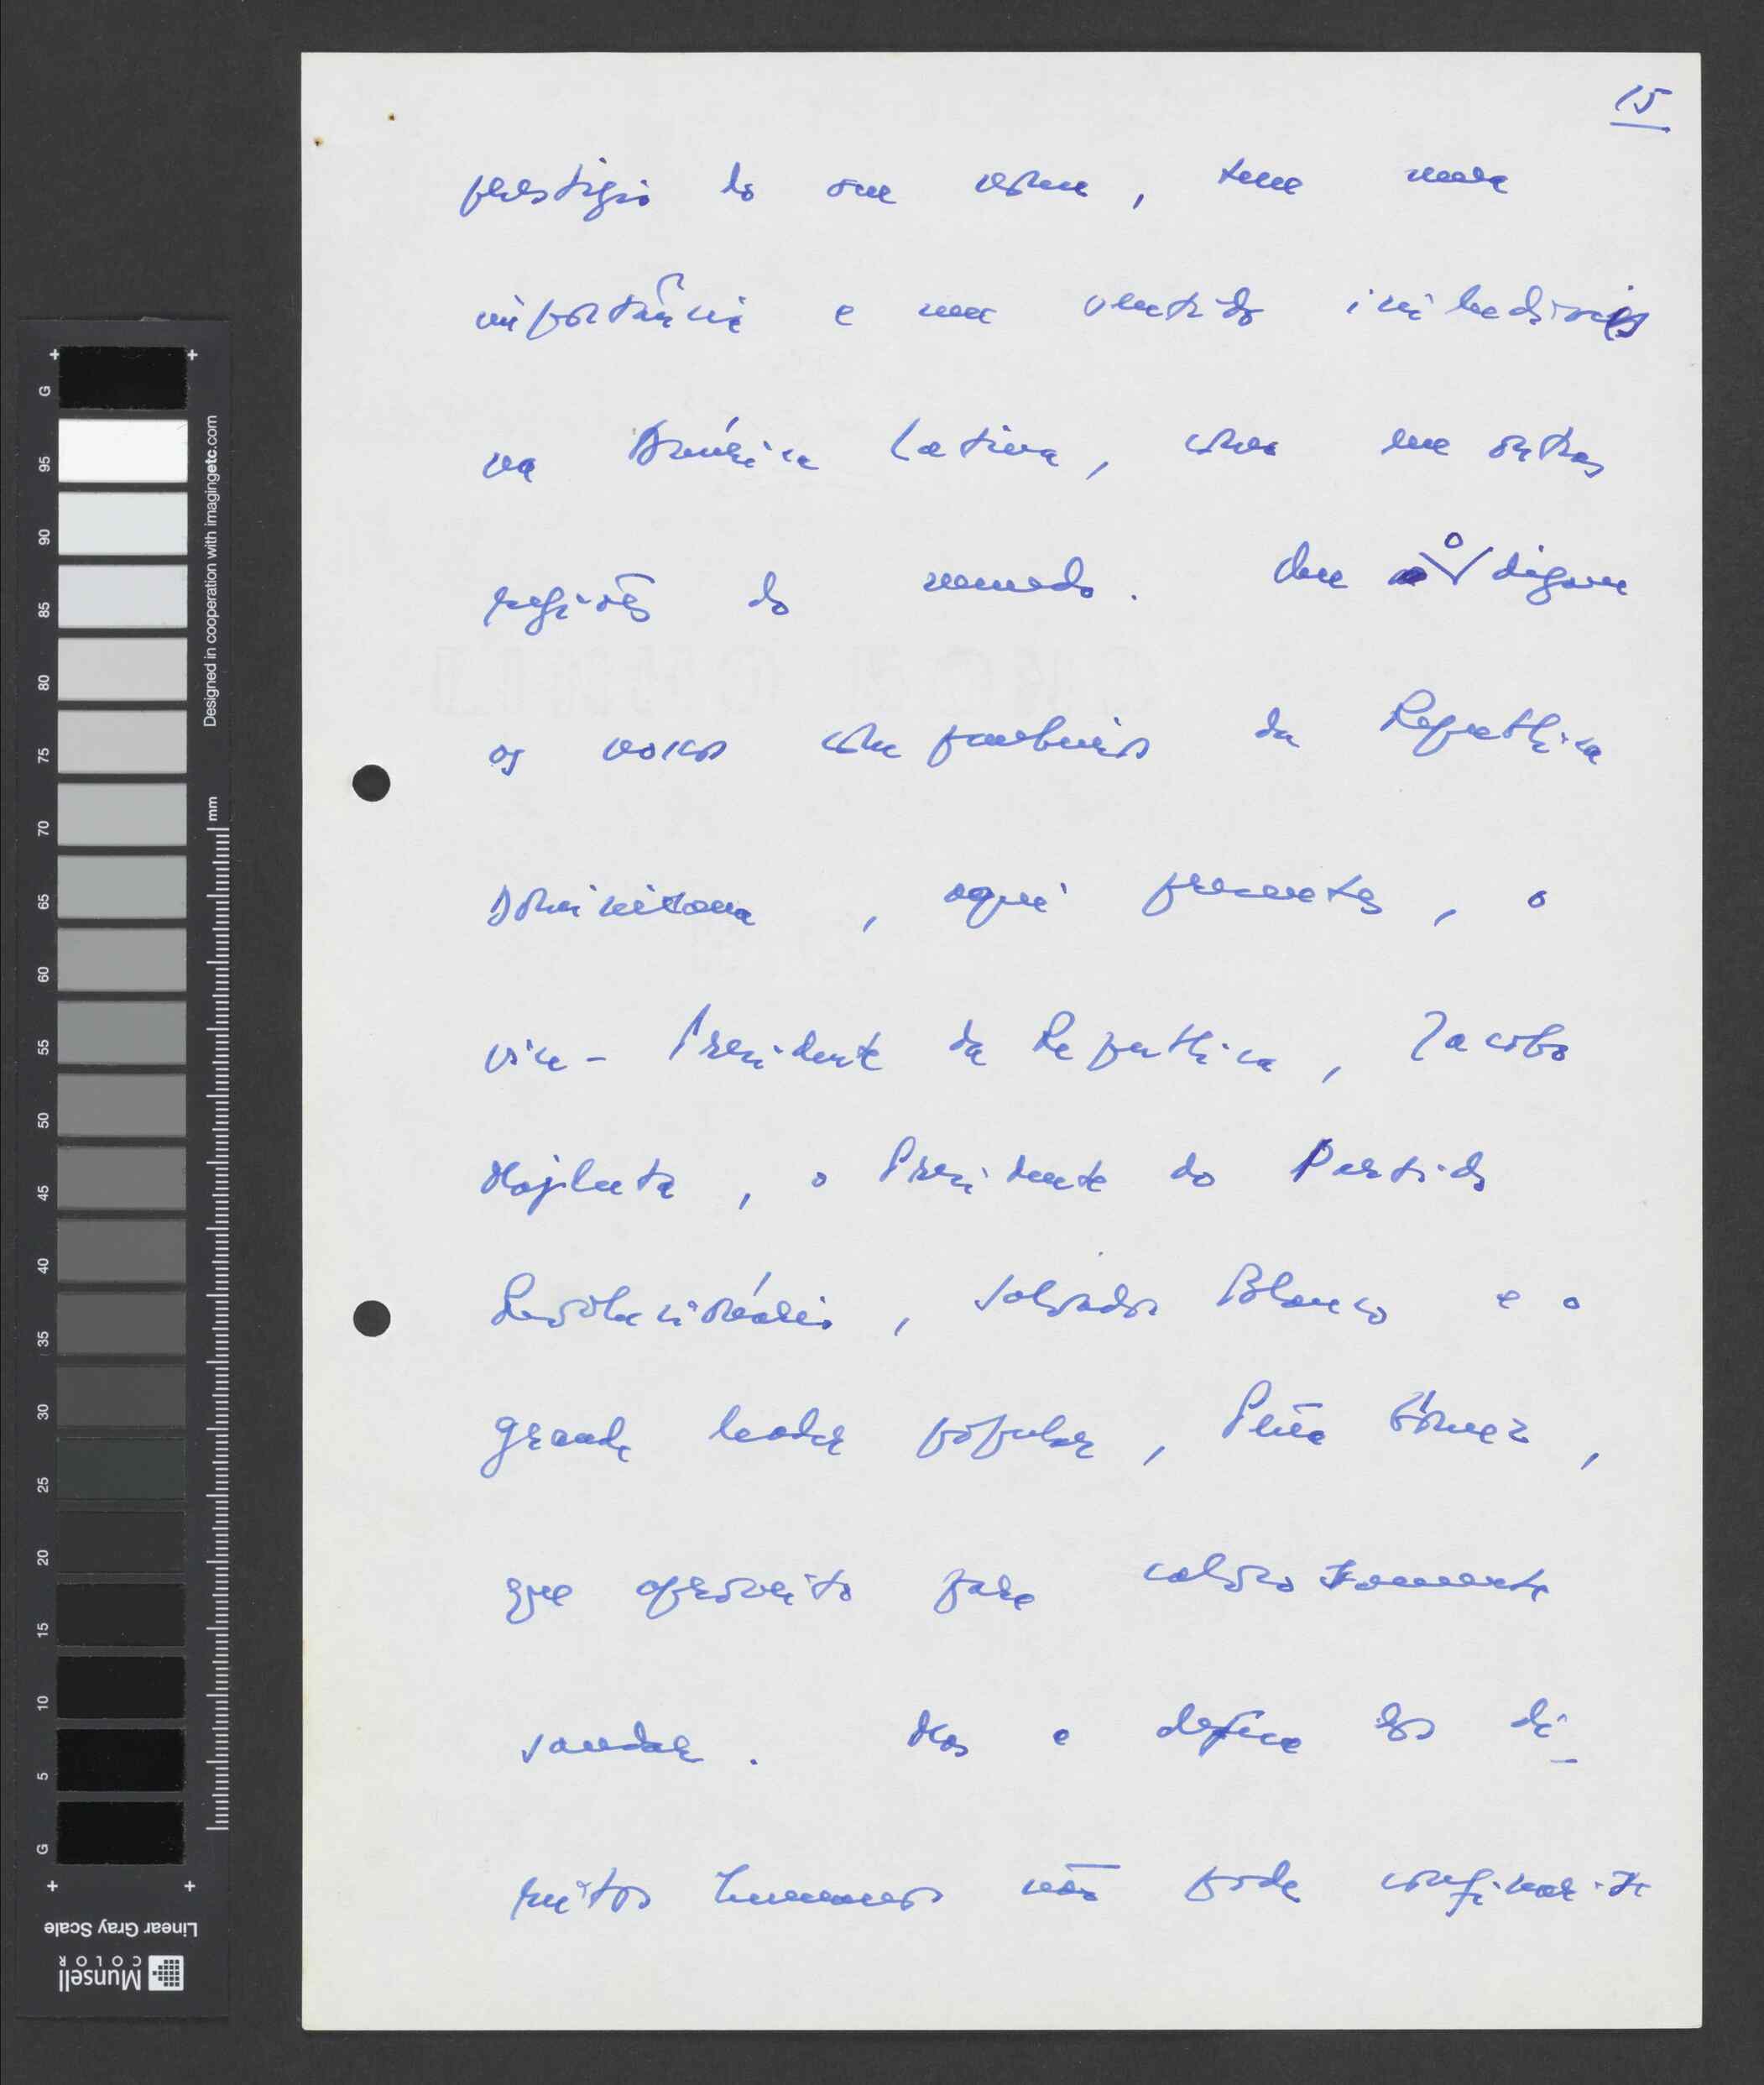 15
prestígio do seu nome, tem uma
importância e um sentido inilud
na América Latina, como em outras
regiões do mundo. Que o digam
os nossos companheiros da Republica
Dominicana, aqui presentes, o
vice-Presidente da Republica, Jacobo
Majluta, o Presidente do Partido
Revolucionário, Salvador Blanco e o
grande leader popular, Peña Gómez,
que aproveito para calorosamente
saudar. Mas a defesa dos di-
reitos humanos não pode confinar-se
G 95 90 85 80 75 70 65 60 55 50 45 40 35 30 25 20 15 10 5 G
Designed in cooperation with imagingetc.com
mm
Linear Gray Scale
Munsell
COLOR